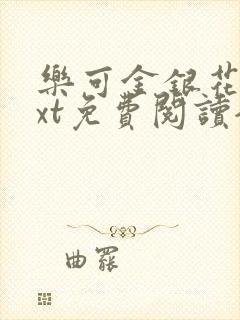 樂可金銀花
xt免費閱讀
曲罷